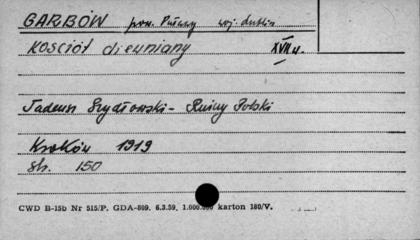 GARBÓW pow. Puławy woj. lublin
Kościół drewniany XVII w.
Tadeusz Szydłowski - Ruiny Polski
Kraków 1919
str. 150
CWD B-15b Nr 515/P. GDA-809. 6.3.59. 1.000.000 karton 180/V.